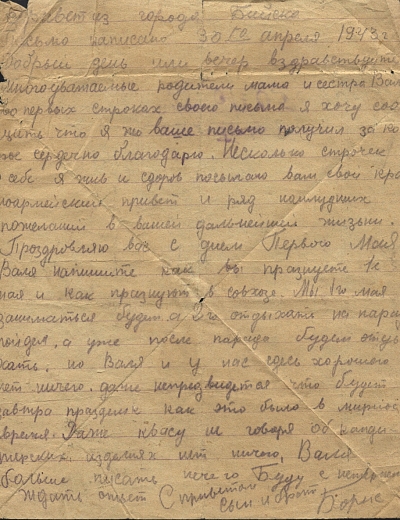 Привет из города Бийска
Письмо написано 30го апреля 1943 г
Добрый день или вечер вздравствуйте
многоуважаемые родители мамо и сестра Валя
во первых строках своего письма я хочу сооб
щить что я же ваше письмо получил за ко
тое сердечно благодарю. Несколько строчек
о себе я жив и здоров посылаю вам свой кра
ноармейский привет и ряд наилудших
пожеланий в вашей дальнейшей жизни.
Проздровляю вас с днем Первого Мая
Валя напишите как вы празнуете 1е
мая и как празнуют в совхозе. Мы 1го мая
заниматься будем а 2го отдыхати на парад
пойдем, а уже после парада будем отды
хать. но Валя и у нас сдесь хорошого
нет ничего. даже непредвидется что будет
завтра праздник как это было в мирное
время. Даже квасу не говоря об конди
терских изделиях нет ничего, Валя
больше писать нечего Буду с нетерпен
ждать ответ С приветом
сын и брат Борис